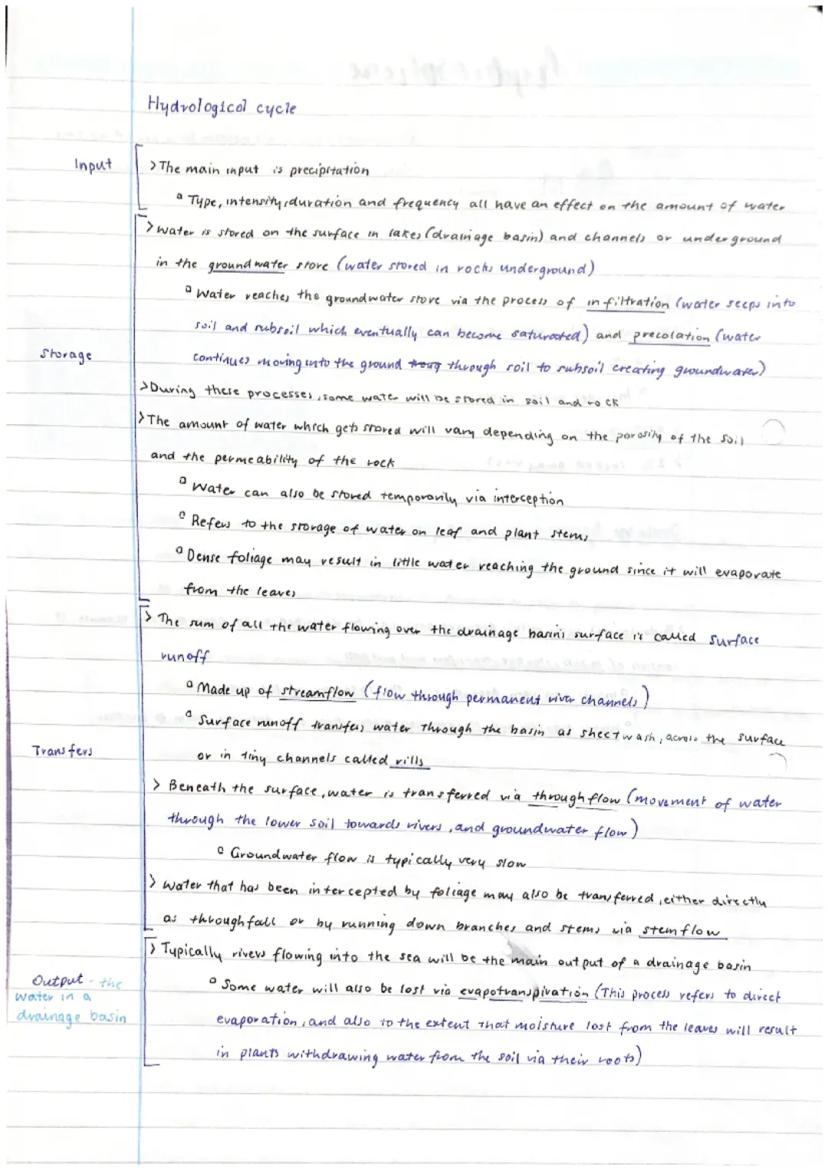 Hydrological cycle
Input
> The main input is precipitation
▫ Type, intensity, duration and frequency all have an effect on the amount of water
> Water is stored on the surface in lakes (drainage basin) and channels or underground
in the groundwater store (water stored in rocks underground)
▫ Water reaches the groundwater store via the process of infiltration (water seeps into
soil and subsoil which eventually can become saturated) and precolation (water
Storage
continues moving into the ground through soil to subsoil creating groundwater)
> During these processes, some water will be stored in soil and rock
> The amount of water which gets stored will vary depending on the porosity of the soil
and the permeability of the rock
▫ Water can also be stored temporarily via interception
▫ Refers to the storage of water on leaf and plant stems
▫ Dense foliage may result in little water reaching the ground since it will evaporate
from the leaves
> The sum of all the water flowing over the drainage basins surface is called surface
runoff
▫ Made up of streamflow (flow through permanent river channels)
▫ Surface runoff transfers water through the basin as sheetwash, across the surface
Transfers
or in tiny channels called rills
> Beneath the surface, water is transferred via throughflow (movement of water
through the lower soil towards rivers, and groundwater flow)
▫ Groundwater flow is typically very slow
> Water that has been intercepted by foliage may also be transferred, either directly
as throughfall or by running down branches and stems via stemflow
> Typically rivers flowing into the sea will be the main output of a drainage basin
Output - the
water in a
drainage basin
▫ Some water will also be lost via evapotranspiration (This process refers to direct
evaporation, and also to the extent that moisture lost from the leaves will result
in plants withdrawing water from the soil via their roots)